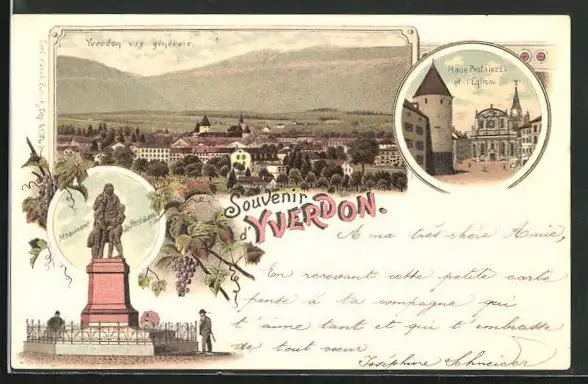 Yverdon vue générale.
Place Pestalozzi
et l'Eglise.
Monument de Pestalozzi
Souvenir
d'YVERDON.
A ma très chère Amie,
En recevant cette petite carte
pense à ta compagne qui
t'aime tant et qui t'embrasse
de tout cœur
Joséphine Schneider